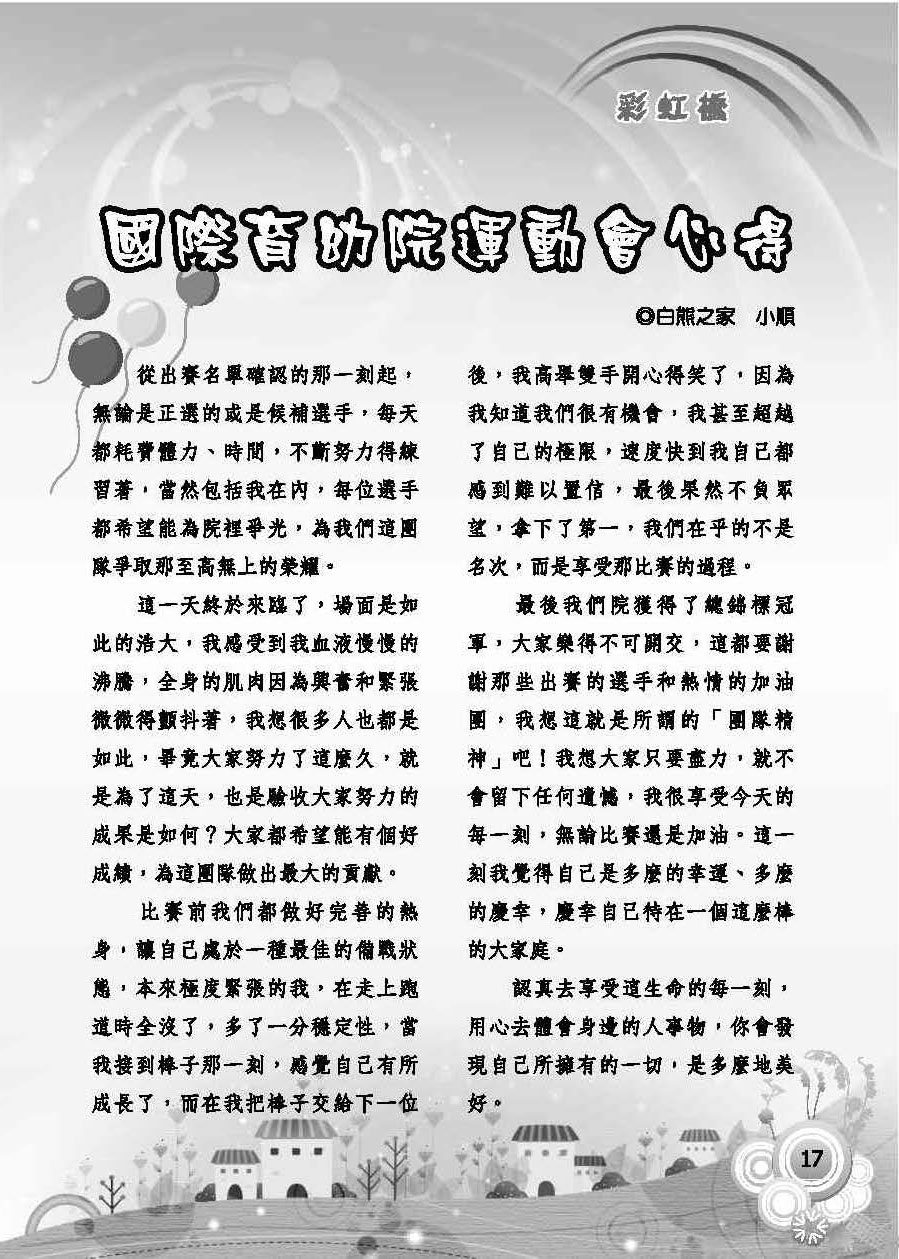 彩虹橋
國際育幼院運動會心得
◎白熊之家　小順
從出賽名單確認的那一刻起，
無論是正選的或是候補選手，每天
都耗費體力、時間，不斷努力得練
習著，當然包括我在內，每位選手
都希望能為院裡爭光，為我們這團
隊爭取那至高無上的榮耀。
這一天終於來臨了，場面是如
此的浩大，我感受到我血液慢慢的
沸騰，全身的肌肉因為興奮和緊張
微微得顫抖著，我想很多人也都是
如此，畢竟大家努力了這麼久，就
是為了這天，也是驗收大家努力的
成果是如何？大家都希望能有個好
成績，為這團隊做出最大的貢獻。
比賽前我們都做好完善的熱
身，讓自己處於一種最佳的備戰狀
態，本來極度緊張的我，在走上跑
道時全沒了，多了一分穩定性，當
我接到棒子那一刻，感覺自己有所
成長了，而在我把棒子交給下一位
後，我高舉雙手開心得笑了，因為
我知道我們很有機會，我甚至超越
了自己的極限，速度快到我自己都
感到難以置信，最後果然不負眾
望，拿下了第一，我們在乎的不是
名次，而是享受那比賽的過程。
最後我們院獲得了總錦標冠
軍，大家樂得不可開交，這都要謝
謝那些出賽的選手和熱情的加油
團，我想這就是所謂的「團隊精
神」吧！我想大家只要盡力，就不
會留下任何遺憾，我很享受今天的
每一刻，無論比賽還是加油。這一
刻我覺得自己是多麼的幸運、多麼
的慶幸，慶幸自己待在一個這麼棒
的大家庭。
認真去享受這生命的每一刻，
用心去體會身邊的人事物，你會發
現自己所擁有的一切，是多麼地美
好。
17